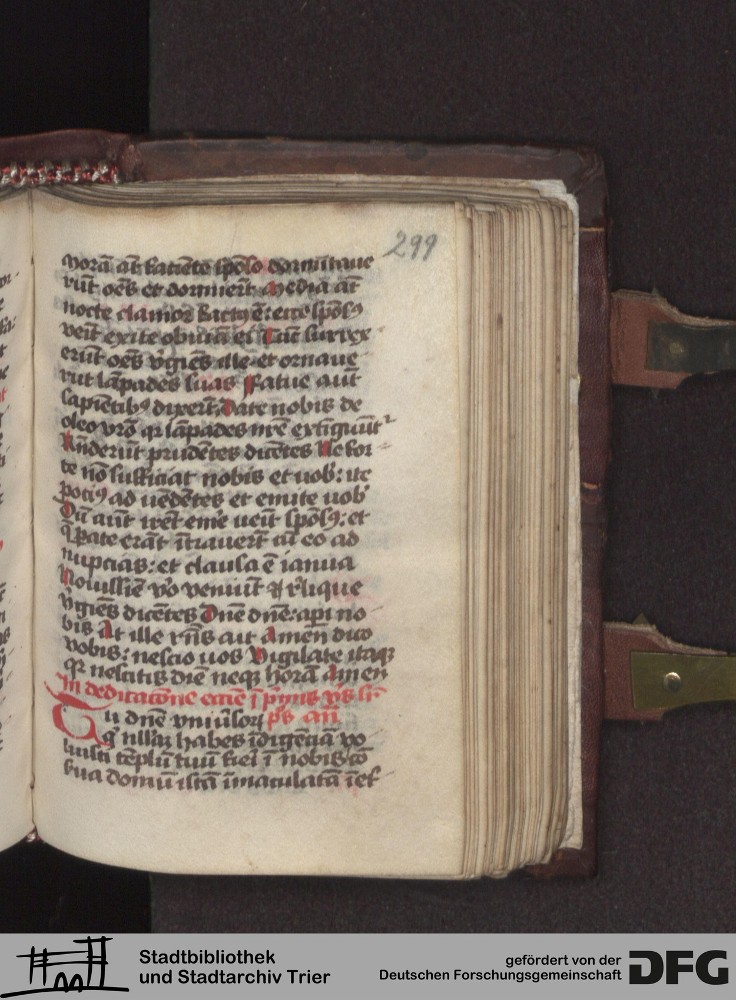 299
Morā at̄ faciēte spōso dormitaue
rūt oēs et dormiert̄ Media at̄
nocte clamor factꝰ ē: ecce spōsꝰ
veīt exite obuiā ei Tūc surrex
erūt oēs v̓gīes ille et ornaue
rūt lāpades suas Fatue aūt
sapiētibꝰ dixert̄ Date nobis de
oleo vr̄o qr lāpades nr̄e extīguūt᷑
Rn̄derūt prudētes dicētes Ne for
te nō sufficiat nobis et uob̓: ite
potiꝰ ad uēdētes et emite uob̓
Dū aūt irēt em̄e ueīt spōsꝰ: et
q̄ pate erāt ītrauert̄ cū eo ad
nupcias: et clausa ē ianua
Nouissīe v̓o veniūt ⁊ rl̓ique
v̓gīes dicētes Dn̄e dn̄e: api no
bis At ille rn̄s ait Amen dico
vobis: nescio uos Vigilate itaqꝫ
qr nescitis diē neqꝫ horā Amen
In dedicacōne eccīe ī pmis vs̄
Tu dn̄e vniūsoꝝ ps̄ an̄
q̓ nllāꝫ habes īdigēciā vo
luisti tēplū tuū fiei ī nobis cō
s̓ua domū istā īmaculatā īet̓
Stadtbibliothek
und Stadtarchiv Trier
gefördert von der
Deutschen Forschungsgemeinschaft
DFG